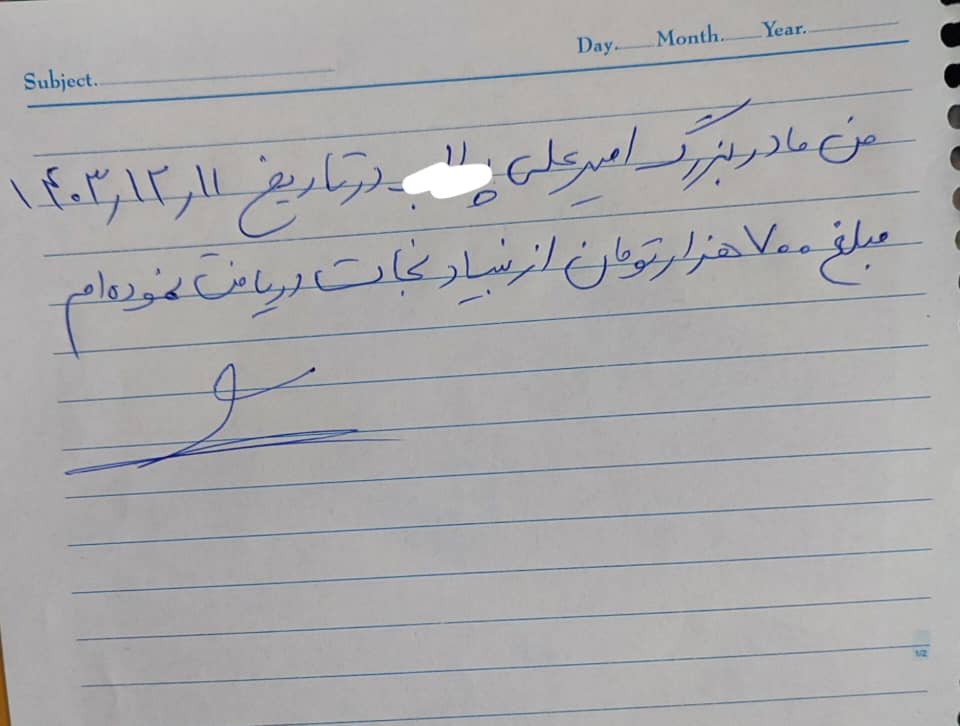 Subject. Day. Month. Year.
من مادربزرگ امیرعلی در تاریخ ۱۴۰۳٫۱۲٫۱۱
مبلغ ۷۰۰ هزار تومان از بنیاد نجات دریافت نموده ام
1/2